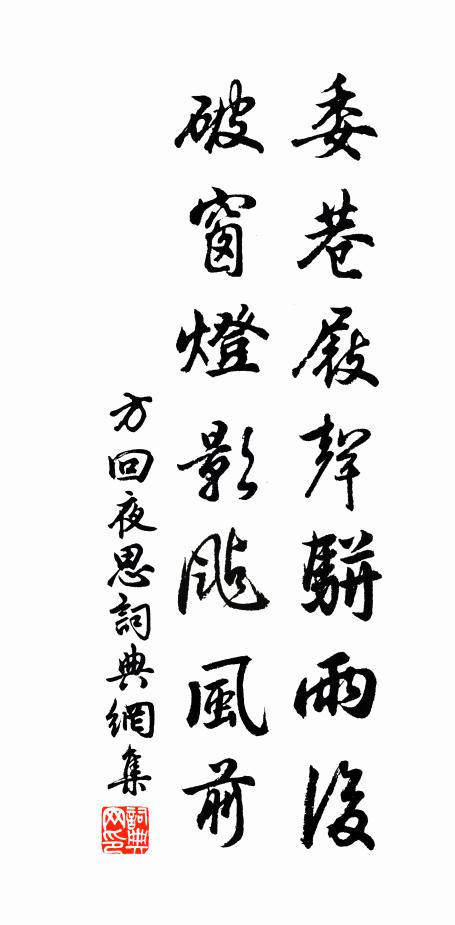 委巷屐聲駢雨後
破窗燈影颭風前
方回夜思詞典網集
詞典
网印